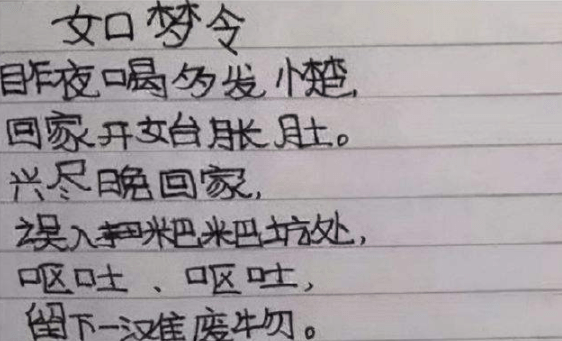 如梦令
昨夜喝多发憷,
回家开始胀肚。
兴尽晚回家,
误入粑粑坑处,
呕吐、呕吐,
留下一滩废物。